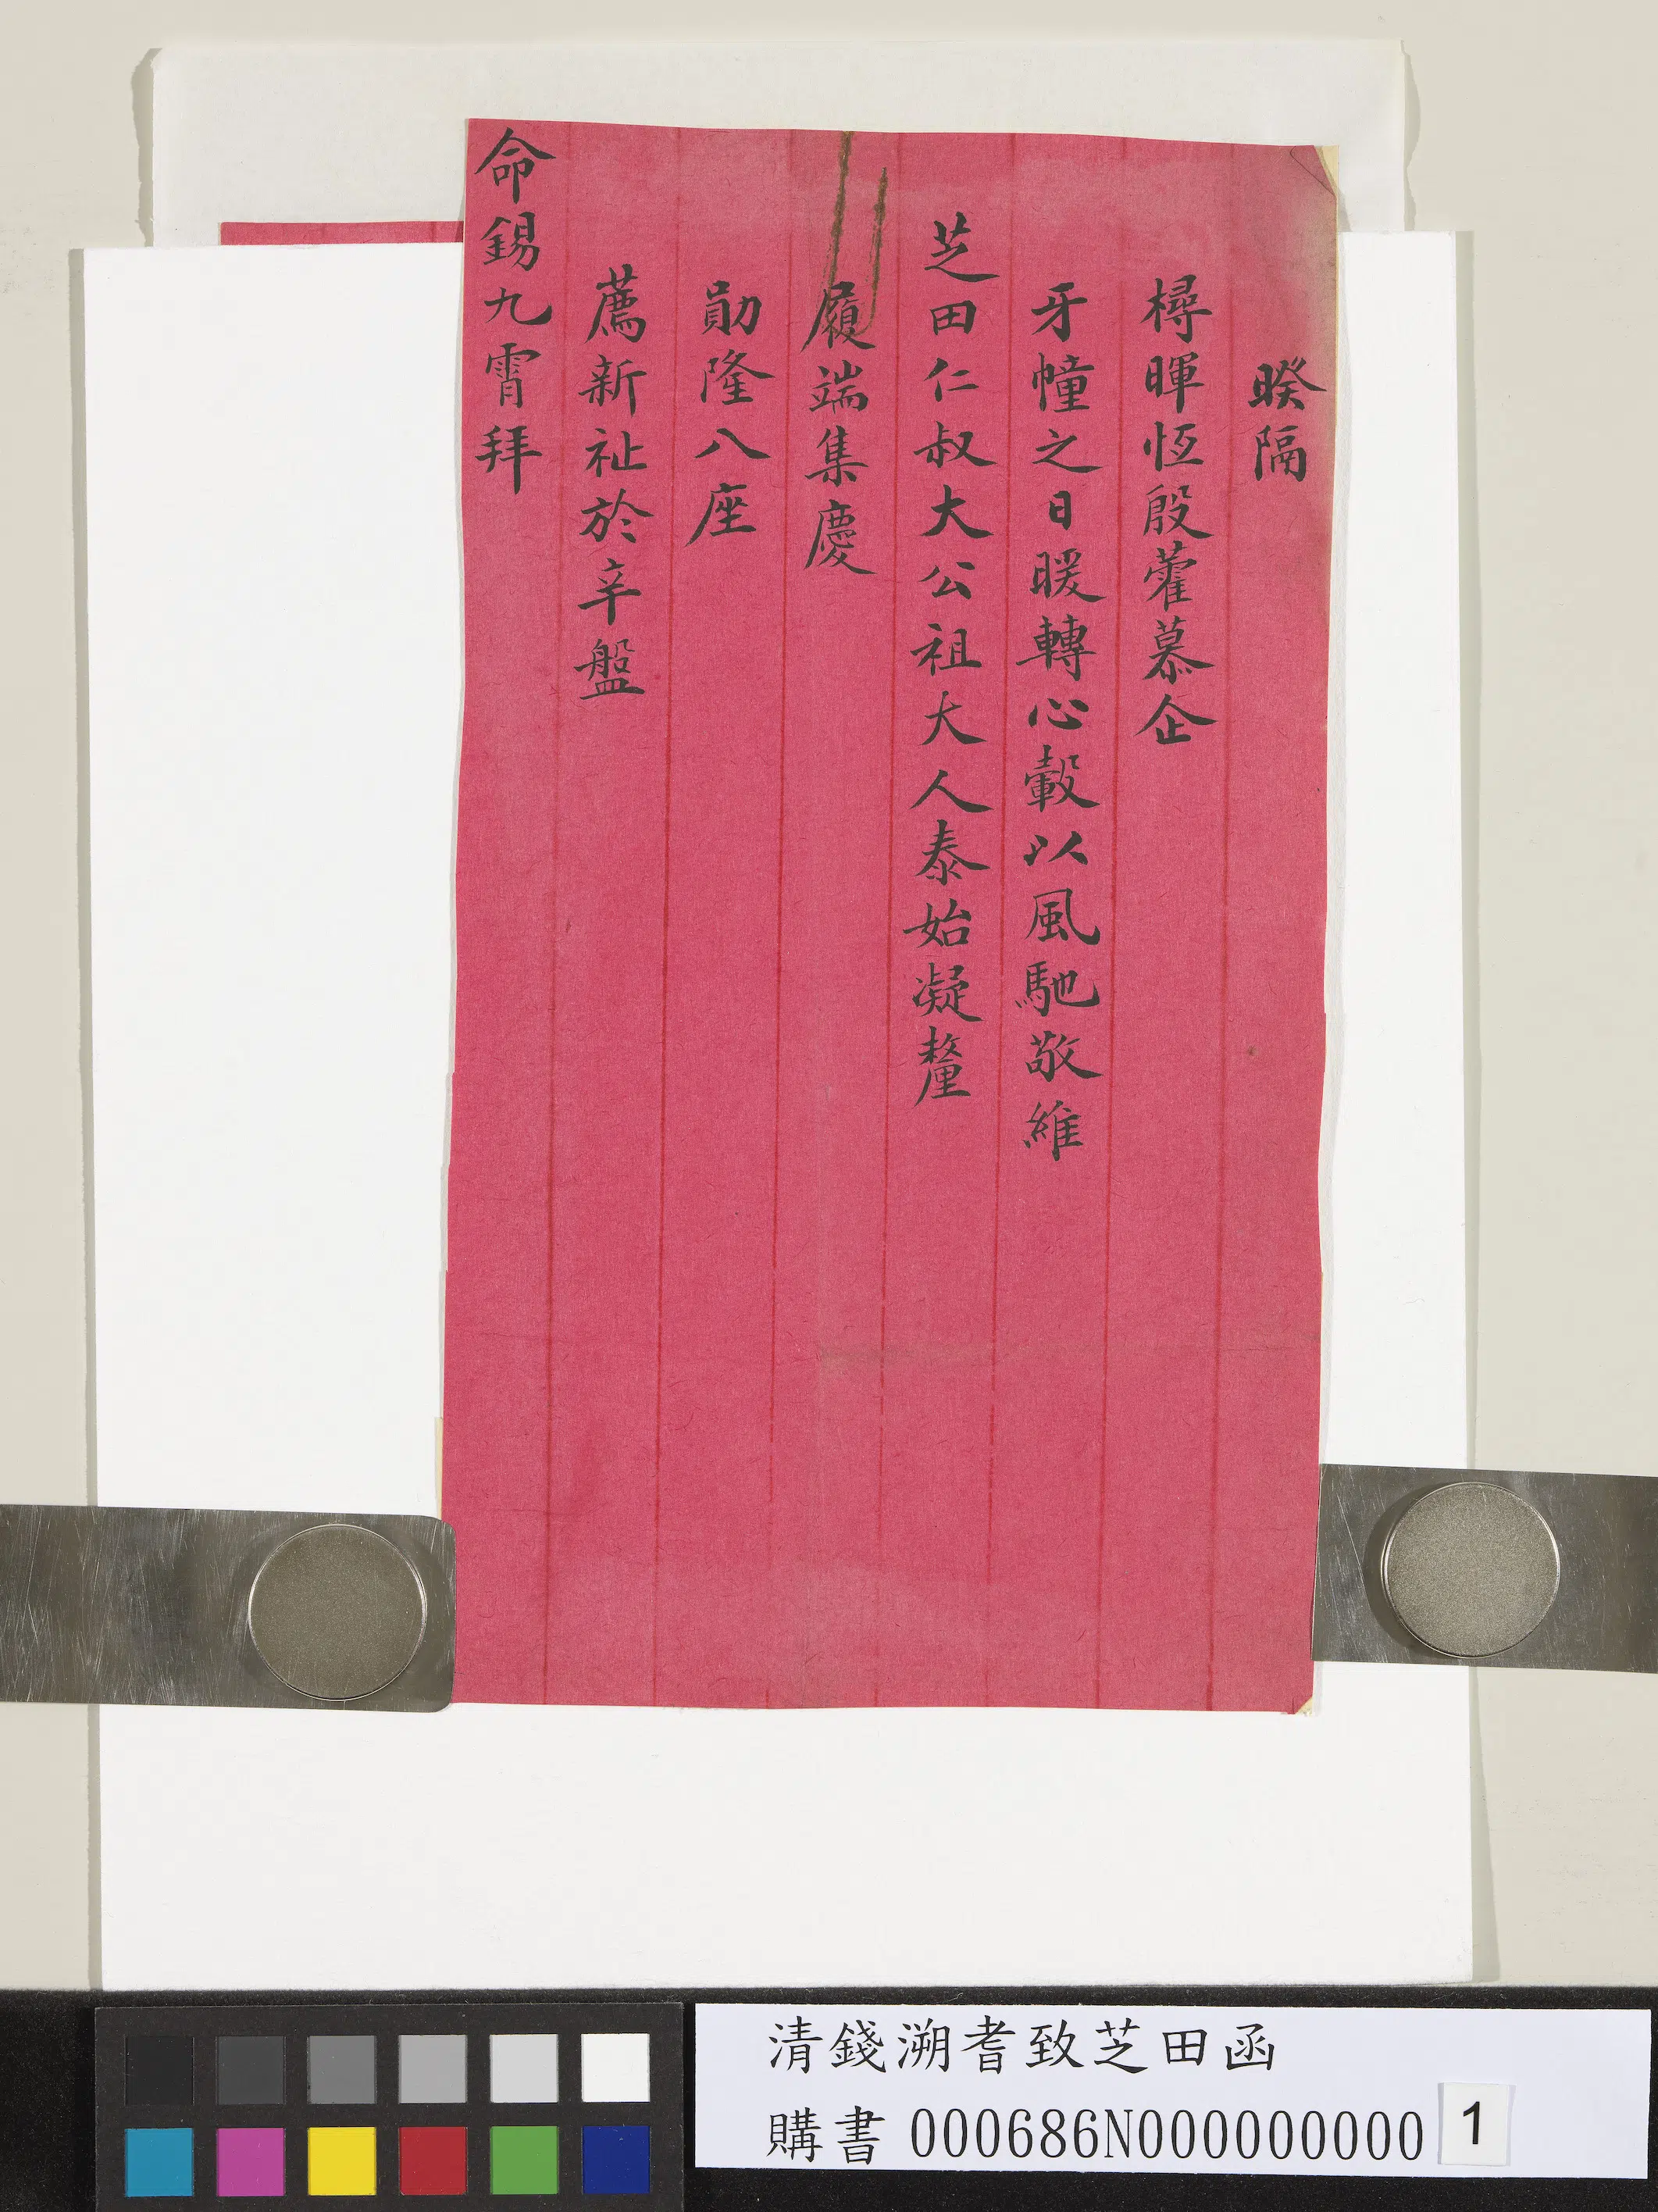 睽隔
樳暉恆殷藿慕企
牙幢之日暖轉心轂以風馳敬維
芝田仁叔大公祖大人泰始凝釐
履端集慶
勛隆八座
薦新祉於辛盤
命錫九霄拜
清錢溯耆致芝田函
購書 000686N000000000 1